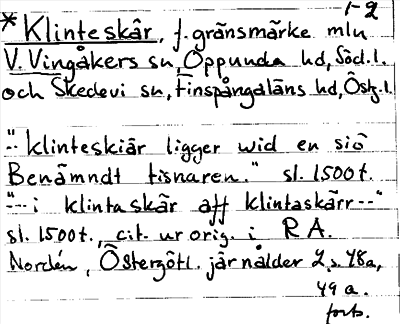 1-2
*Klinteskär, f. gränsmärke mln
V. Vingåkers sn, Oppunda hd, Södl.l.
och Skedevi sn, Finspångaläns hd, Östg.l.
"-- klinteskiär ligger wid en siö
Benämndt tisnaren." sl. 1500t.
"--- i klintaskär aff klintaskärr--"
sl. 1500t., cit. ur orig. i RA.
Nordén, Östergötl. järnålder 2, s. 48a,
49 a.
forts.